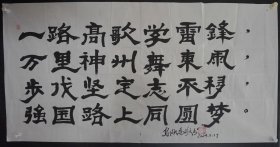 一路高歌学雷鋒
万里神州舞東風
步伐坚定志不移
强国路上同圆梦